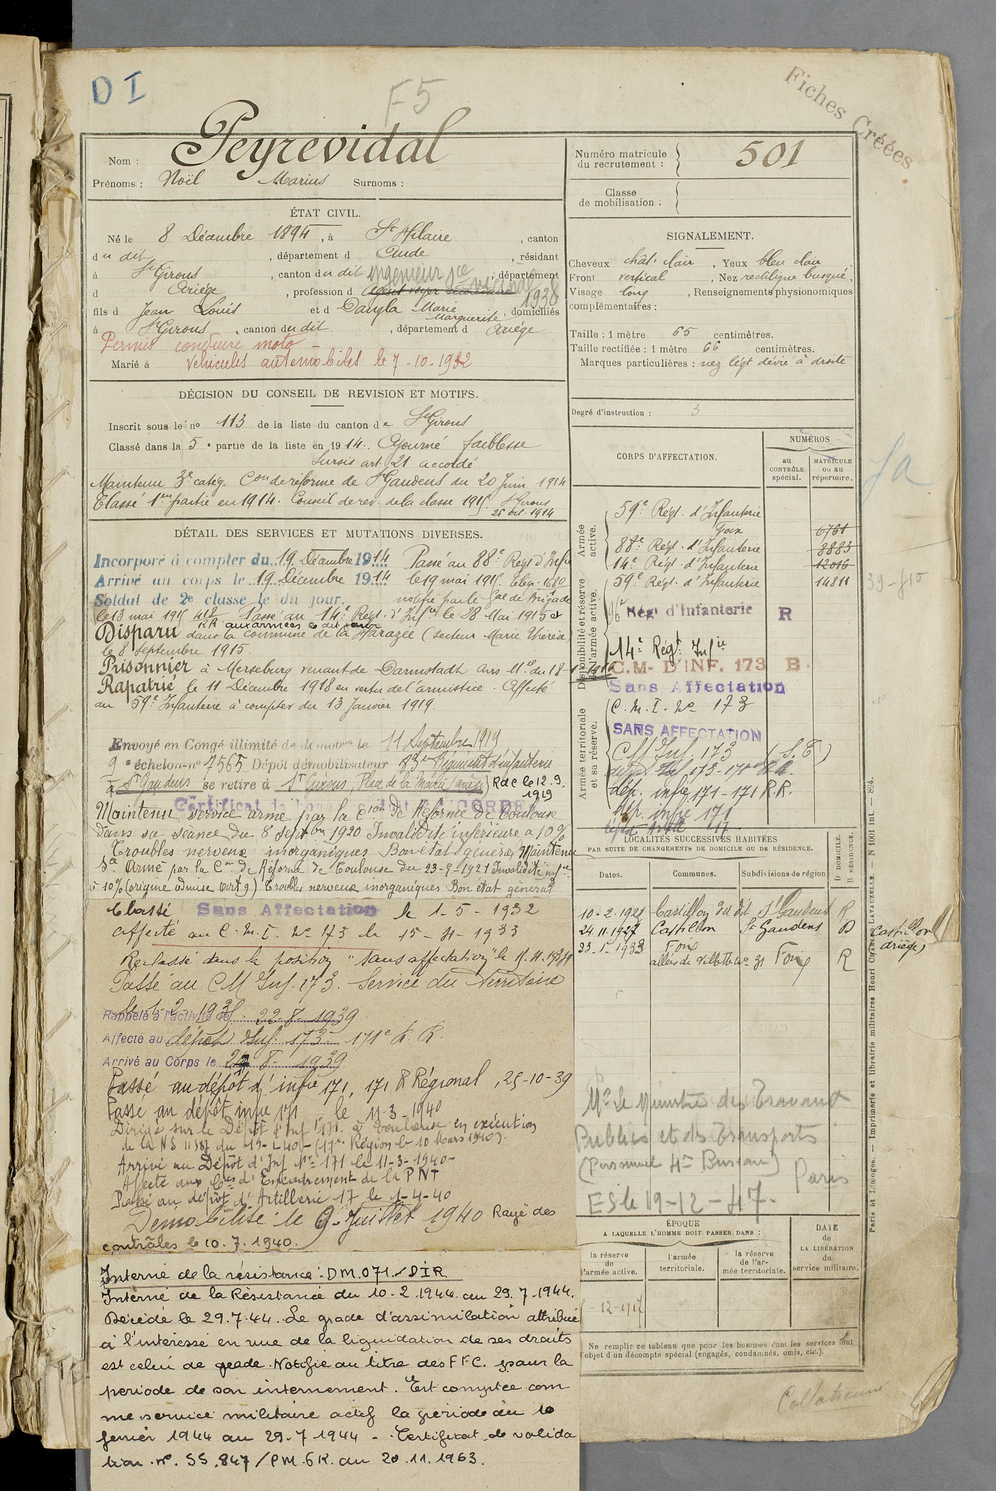 D I
F5
Fiches Créées
Nom : Peyrevidal
Prénoms : Noël Marius Surnoms :
Numéro matricule du recrutement : 501
Classe de mobilisation :
ÉTAT CIVIL.
Né le 8 Décembre 1894, à St Hilaire, canton
du dit, département d Aude, résidant
à St Girons, canton du dit, département
d Ariège, profession d
1938
fils d Jean Louis et d Dangla Marie Marguerite, domiciliés
à St Girons, canton du dit, département d Ariège
Permis conduire moto -
Marié à
Véhicules automobiles le 7-10-1932
SIGNALEMENT.
Cheveux chât. clair, Yeux bleu clair
Front vertical, Nez rectiligne busqué
Visage long, Renseignements physionomiques
complémentaires :
Taille : 1 mètre 65 centimètres.
Taille rectifiée : 1 mètre 66 centimètres.
Marques particulières : nez légt dévié à droite
Degré d'instruction : 3
DÉCISION DU CONSEIL DE REVISION ET MOTIFS.
Inscrit sous le n° 113 de la liste du canton de St Girons
Classé dans la 5e partie de la liste en 1914. Ajourné faiblesse
Sursis art. 21 accordé
Maintenu 3e catég. Con de réforme de St Gaudens du 20 Juin 1914
Classé 1ère partie en 1914. Conseil de rev. de la classe 1915. St Girons
26 oct. 1914
DÉTAIL DES SERVICES ET MUTATIONS DIVERSES.
Incorporé à compter du 19 Décembre 1914 Passé au 88e Régt d'Infie
Arrivé au corps le 19 Décembre 1914 le 19 mai 1915
Soldat de 2e classe le du jour. notifié par le Gal de Brigade
le 13 mai 1915 Passé au 14e Régt. d'Infie le 28 Mai 1915
aux armées le dit jour
Disparu dans la commune de la Harazée (secteur Marie Thérèse)
le 8 Septembre 1915.
Prisonnier à Merseburg venant de Darmstadt
Rapatrié le 11 Décembre 1918 en vertu de l'armistice. Affecté
au 59e Infanterie à compter du 13 Janvier 1919.
Envoyé en Congé illimité de démobon le 11 Septembre 1919
9e échelon n° 4565 Dépôt démobilisateur 83e Régiment d'infanterie
à St Gaudens se retire à St Girons, Place de la Mairie (Ariège) RdC le 12.9.1919
Maintenu service armé par la Cion de Réforme de Toulouse
dans sa séance du 8 Septbre 1920 Invalidité inférieure à 10%
Troubles nerveux inorganiques Bon état général Maintenu
Sce Armé par la Con de Réforme de Toulouse du 23-9-1921 Invalidité infre
à 10% (origine admise art 9.) Troubles nerveux inorganiques Bon état général
Classé Sans Affectation le 1-5-1932
affecté au C.M.I. No 173 le 15-11-1933
Reclassé dans la position "sans affectation"
Passé au CM Inf. 173. Service du Territoire
Rappelé à l'activité le : 22-8-1939
Affecté au dépôt Inf. 173 171e R.R.
Arrivé au Corps le 24 8-1939
Passé au dépôt d'infie 171, 171 R Régional, 25-10-39
Passé au dépôt infie 171 le 11-3-1940
Dirigé sur le Dépôt d'Inf 171 à Toulouse en exécution
Arrivé au Dépôt d'Inf No 171 le 11-3-1940-
Affecté aux Cies d'Encadrement de la PNT
Passé au dépôt d'Artillerie 17 le 1-4-40
Démobilisé le 9-Juillet 1940 Rayé des
contrôles le 10.7.1940.
Interné de la résistance : DM.071./DIR
Interné de la Résistance du 10-2-1944 au 29.7-1944.
Décédé le 29.7.44. Le grade d'assimilation attribué
à l'intéressé en vue de la liquidation de ses droits
est celui de grade. Notifié au titre des FFC. pour la
période de son internement. Est comptée com
me service militaire actif la période du 10
février 1944 au 29-7-1944 -. Certificat de valida
tion n° SS.847/PM.6R. du 20.11.1963.
CORPS D'AFFECTATION.
NUMÉROS
au CONTRÔLE spécial.
MATRICULE ou au répertoire.
Armée active.
59e Régt. d'Infanterie
Foix
88e Régt. d'Infanterie 8883
14e Régt. d'Infanterie 12016
59e Régt. d'Infanterie 14811
Disponibilité et réserve de l'armée active.
Régt d'Infanterie R
14e Régt Infie
C.M. D'INF. 173 B
Sans Affectation
C.M.I. No 173
SANS AFFECTATION
Armée territoriale et sa réserve.
CM Inf. 173 (S.T)
dép. infie 171-171 R.R.
Dép. infie 171
LOCALITÉS SUCCESSIVES HABITÉES
PAR SUITE DE CHANGEMENTS DE DOMICILE OU DE RÉSIDENCE.
Dates. Communes. Subdivisions de région
D DOMICILE.
R RÉSIDENCE.
10-2-1921 Castillon St Gaudens R
24.11.1927 Castillon St Gaudens D
Castillon
Ariège
23-5-1933 Foix
allées de Villote no 31 Foix R
Mr le Ministre des Travaux
Publics et des Transports
(Personnel 4e Bureau)
Paris
ES le 19-12-47.
ÉPOQUE
A LAQUELLE L'HOMME DOIT PASSER DANS :
la réserve de l'armée active.
l'armée territoriale.
la réserve de l'armée territoriale.
DATE de LA LIBÉRATION du service militaire.
Ne remplir ce tableau que pour les hommes dont les services font
l'objet d'un décompte spécial (engagés, condamnés, omis, etc.).
Paris et Limoges. — Imprimerie et librairie militaires Henri CHARLES-LAVAUZELLE. — N 1001 int. — 894.